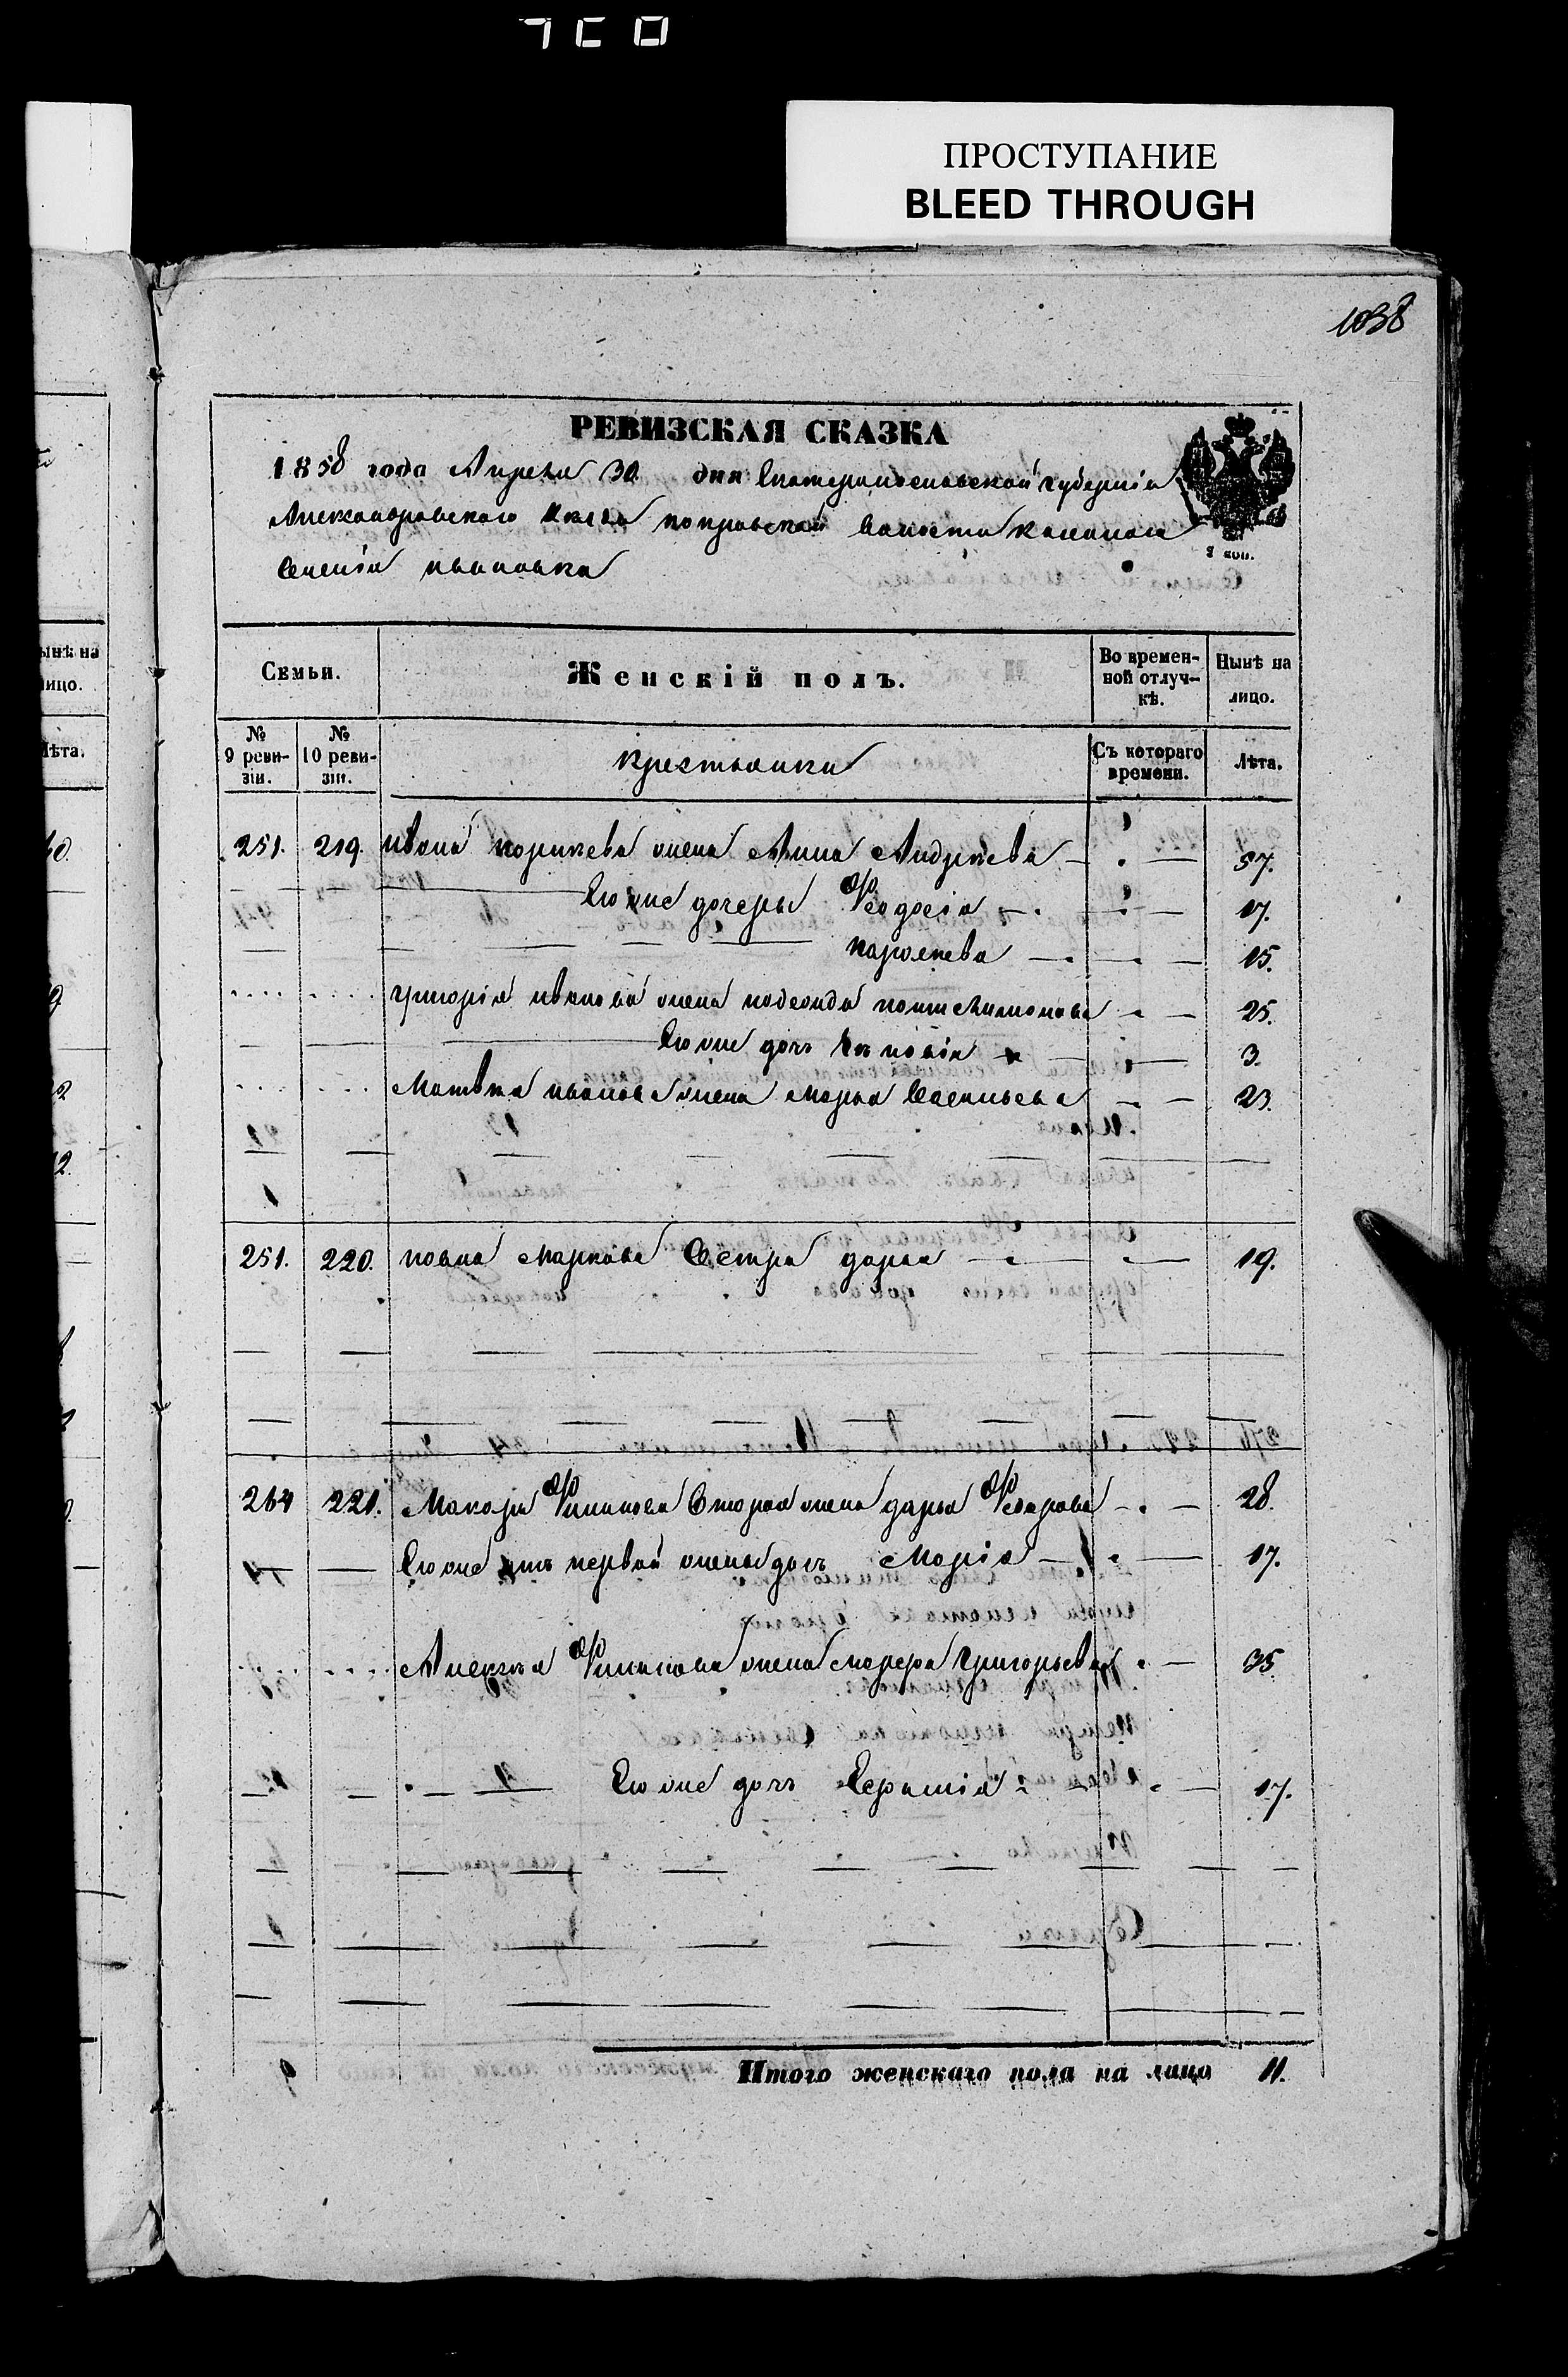 ПРОСТУПАНИЕ
BLEED THROUGH
1038
РЕВИЗСКАЯ СКАЗКА
1858 года Апреля 30 дня Екатеринославской губернiи
Александровского уезда покровской волости казенного
Селенiя ивановки
3 коп.
Семьи.
Женскiй полъ.
Во времен-
ной отлуч-
кѣ.
Нынѣ на
лицо.
№
9 реви-
зiи.
№
10 реви-
зiи.
крестьянки
Съ котораго
времени.
Лѣта.
251. 219. ивана корнеева жена Анна Андреева 57.
Его же дочери Феодосiя 17.
15.
григорiя иванова жена 25.
Его же дочь 3.
Матвея иванова жена Марья Васильева 23.
251. 220. Маркова Сестра дарья 19.
264 221. Макара Филипова Вторая жена дарья Федорова 28.
Его же отъ первой жены дочь Марiя 17.
Алексея Филипова жена Григорьева 35
Его же дочь 17.
Итого женскаго пола на лицо 11.
ынѣ на
ицо.
ѣта.